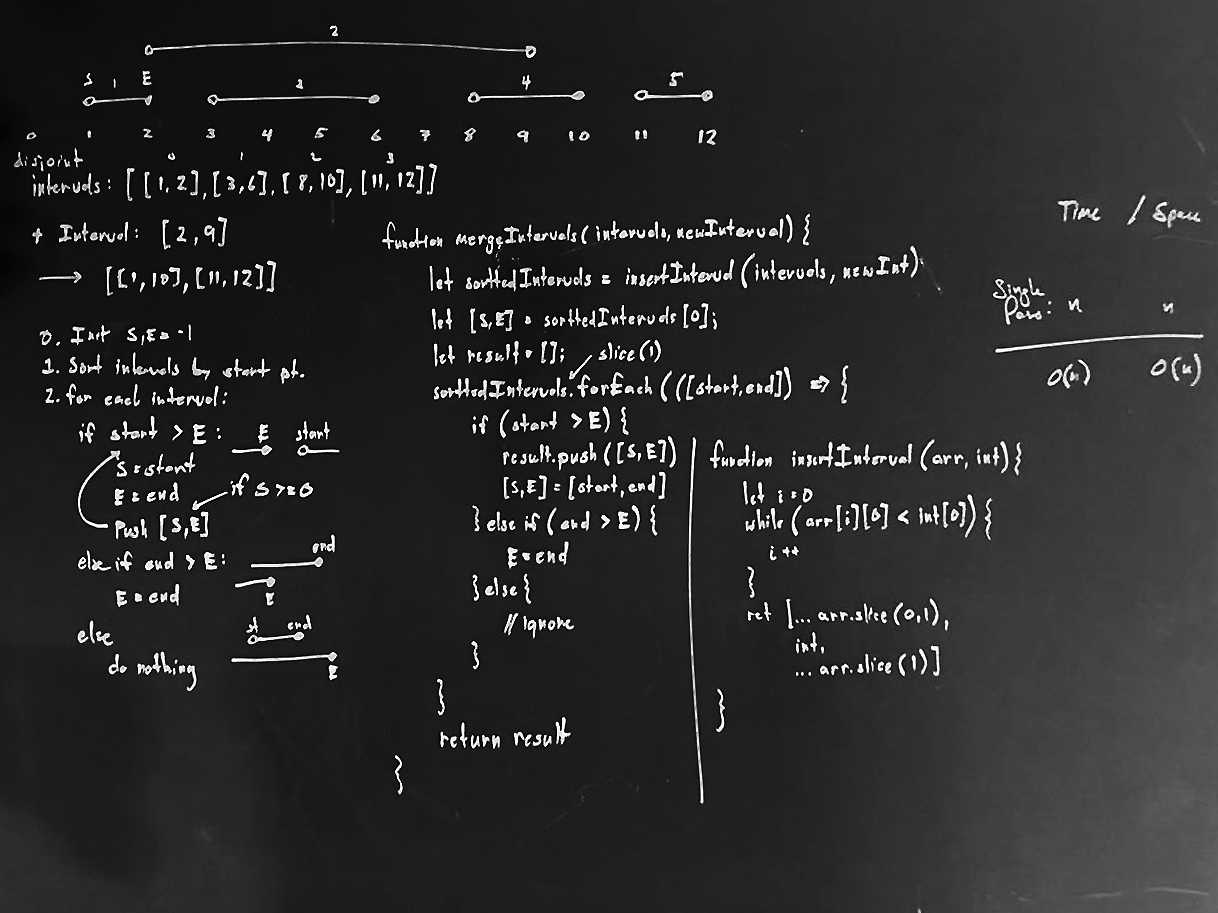 2
S 1 E 3 4 5
0 1 2 3 4 5 6 7 8 9 10 11 12
disjoint 0 1 2 3
intervals: [[1,2],[3,6],[8,10],[11,12]]
+ Interval: [2,9]
→ [[1,10],[11,12]]
0. Init S,E = -1
1. Sort intervals by start pt.
2. for each interval:
if start > E: E start
S = start
E = end
if S >= 0
Push [S,E]
else if end > E: end
E = end E
else st end
do nothing E
function mergeIntervals(intervals, newInterval) {
let sorttedIntervals = insertInterval(intervals, newInt);
let [S,E] = sorttedIntervals[0];
let result = []; slice(1)
sorttedIntervals.forEach(([start,end]) => {
if (start > E) {
result.push([S,E])
[S,E] = [start,end]
} else if (end > E) {
E = end
} else {
// ignore
}
}
return result
}
function insertInterval(arr, int) {
let i = 0
while (arr[i][0] < int[0]) {
i++
}
ret [...arr.slice(0,1),
int,
...arr.slice(1)]
}
Time / Space
Single
Pass: n n
O(n) O(n)